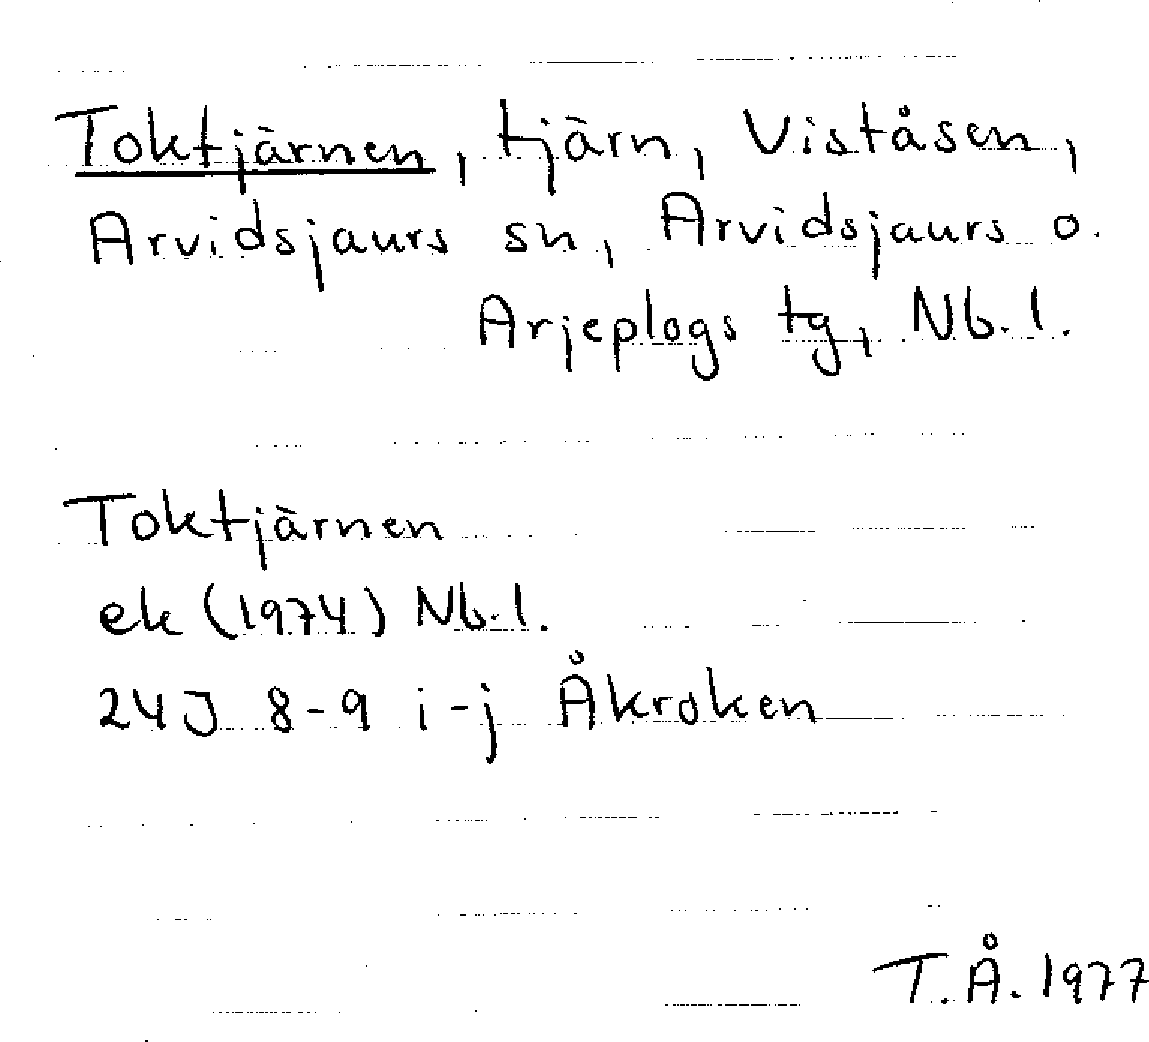 Toktjärnen, tjärn, Viståsen,
Arvidsjaurs sn, Arvidsjaurs o.
Arjeplogs tg, Nb. l.
Toktjärnen
ek (1974) Nb. l.
24J 8-9 i-j Åkroken
T.Å. 1977